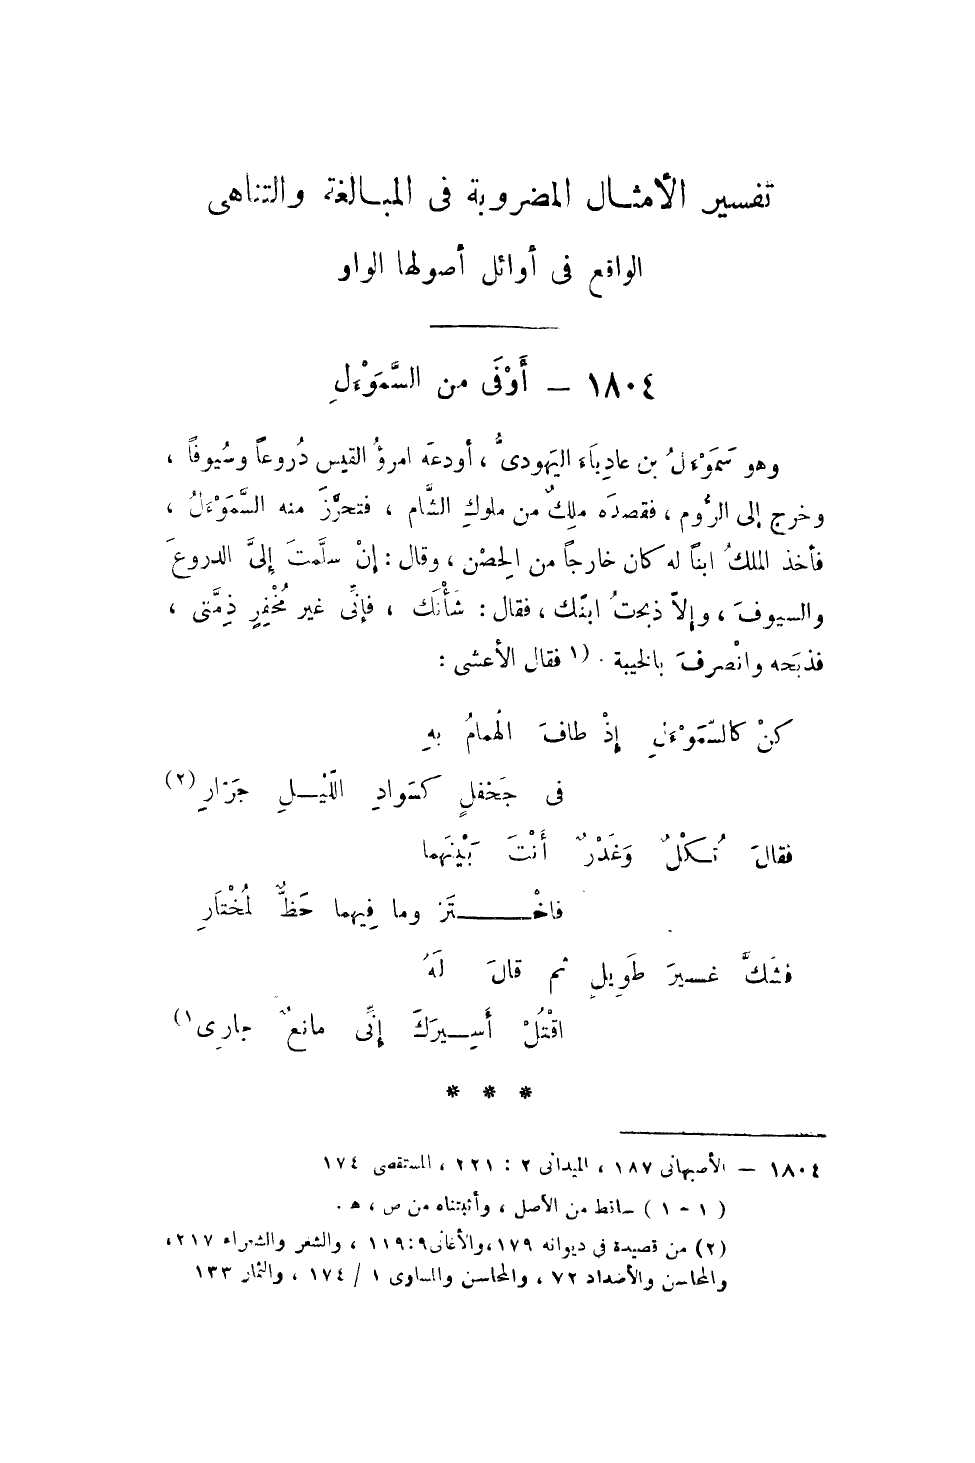 تفسير الأمثـال المضروبة فى المبـالغة والتناهى
الواقع فى أوائل أصولها الواو
١٨٠٤ – أَوْفَى من السَّمَوْءَلِ
وهو سَمَوْءَلُ بن عادِياَء اليَهودىُّ ، أودعَه امرؤُ القيس دُروعاً وسُيوفاً ،
وخرج إلى الرُّوم ، فقصدَه ملِكٌ من ملوكِ الشَّام ، فتحرَّزَ منه السَّمَوْءَلُ ،
فأخذ الملكُ ابناً له كان خارجاً من الحِصْن ، وقال : إنْ سلَّمتَ إلىَّ الدروعَ
والسيوفَ ، وإلاّ ذبحتُ ابنَك ، فقال : شَأْنَك ، فإنِّى غير مُخْفِرٍ ذِمَّتى ،
فذبَحه وانْصرفَ بالخيبة . (١ فقال الأعشى :
كنْ كالسَّمَوْءَلِ إِذْ طافَ الهمامُ بهِ
فى جَحْفلٍ كسَوادِ اللَّيْـلِ جَرَّارِ (٢)
فقالَ ثُـكْلٌ وَغَدْرٌ أَنْتَ بَيْنَهما
فاخْـــتَرْ وما فِيهما حَظٌّ لمُخْتَارِ
فشَكَّ غـيرَ طَوِيلٍ ثم قالَ لَهُ
اقْتُلْ أَسِـيرَكَ إِنِّى مانعٌ جارِى ١)
* * *
١٨٠٤ – الأصبهانى ١٨٧ ، الميدانى ٢ : ٢٢١ ، المستقصى ١٧٤
( ١ - ١ ) ساقط من الأصل ، وأثبتناه من ص ، هـ .
(٢) من قصيدة فى ديوانه ١٧٩ ، والأغانى ٩ : ١١٩ ، والشعر والشعراء ٢١٧ ،
والمحاسن والأضداد ٧٢ ، والمحاسن والمساوى ١ / ١٧٤ ، والثمار ١٣٣